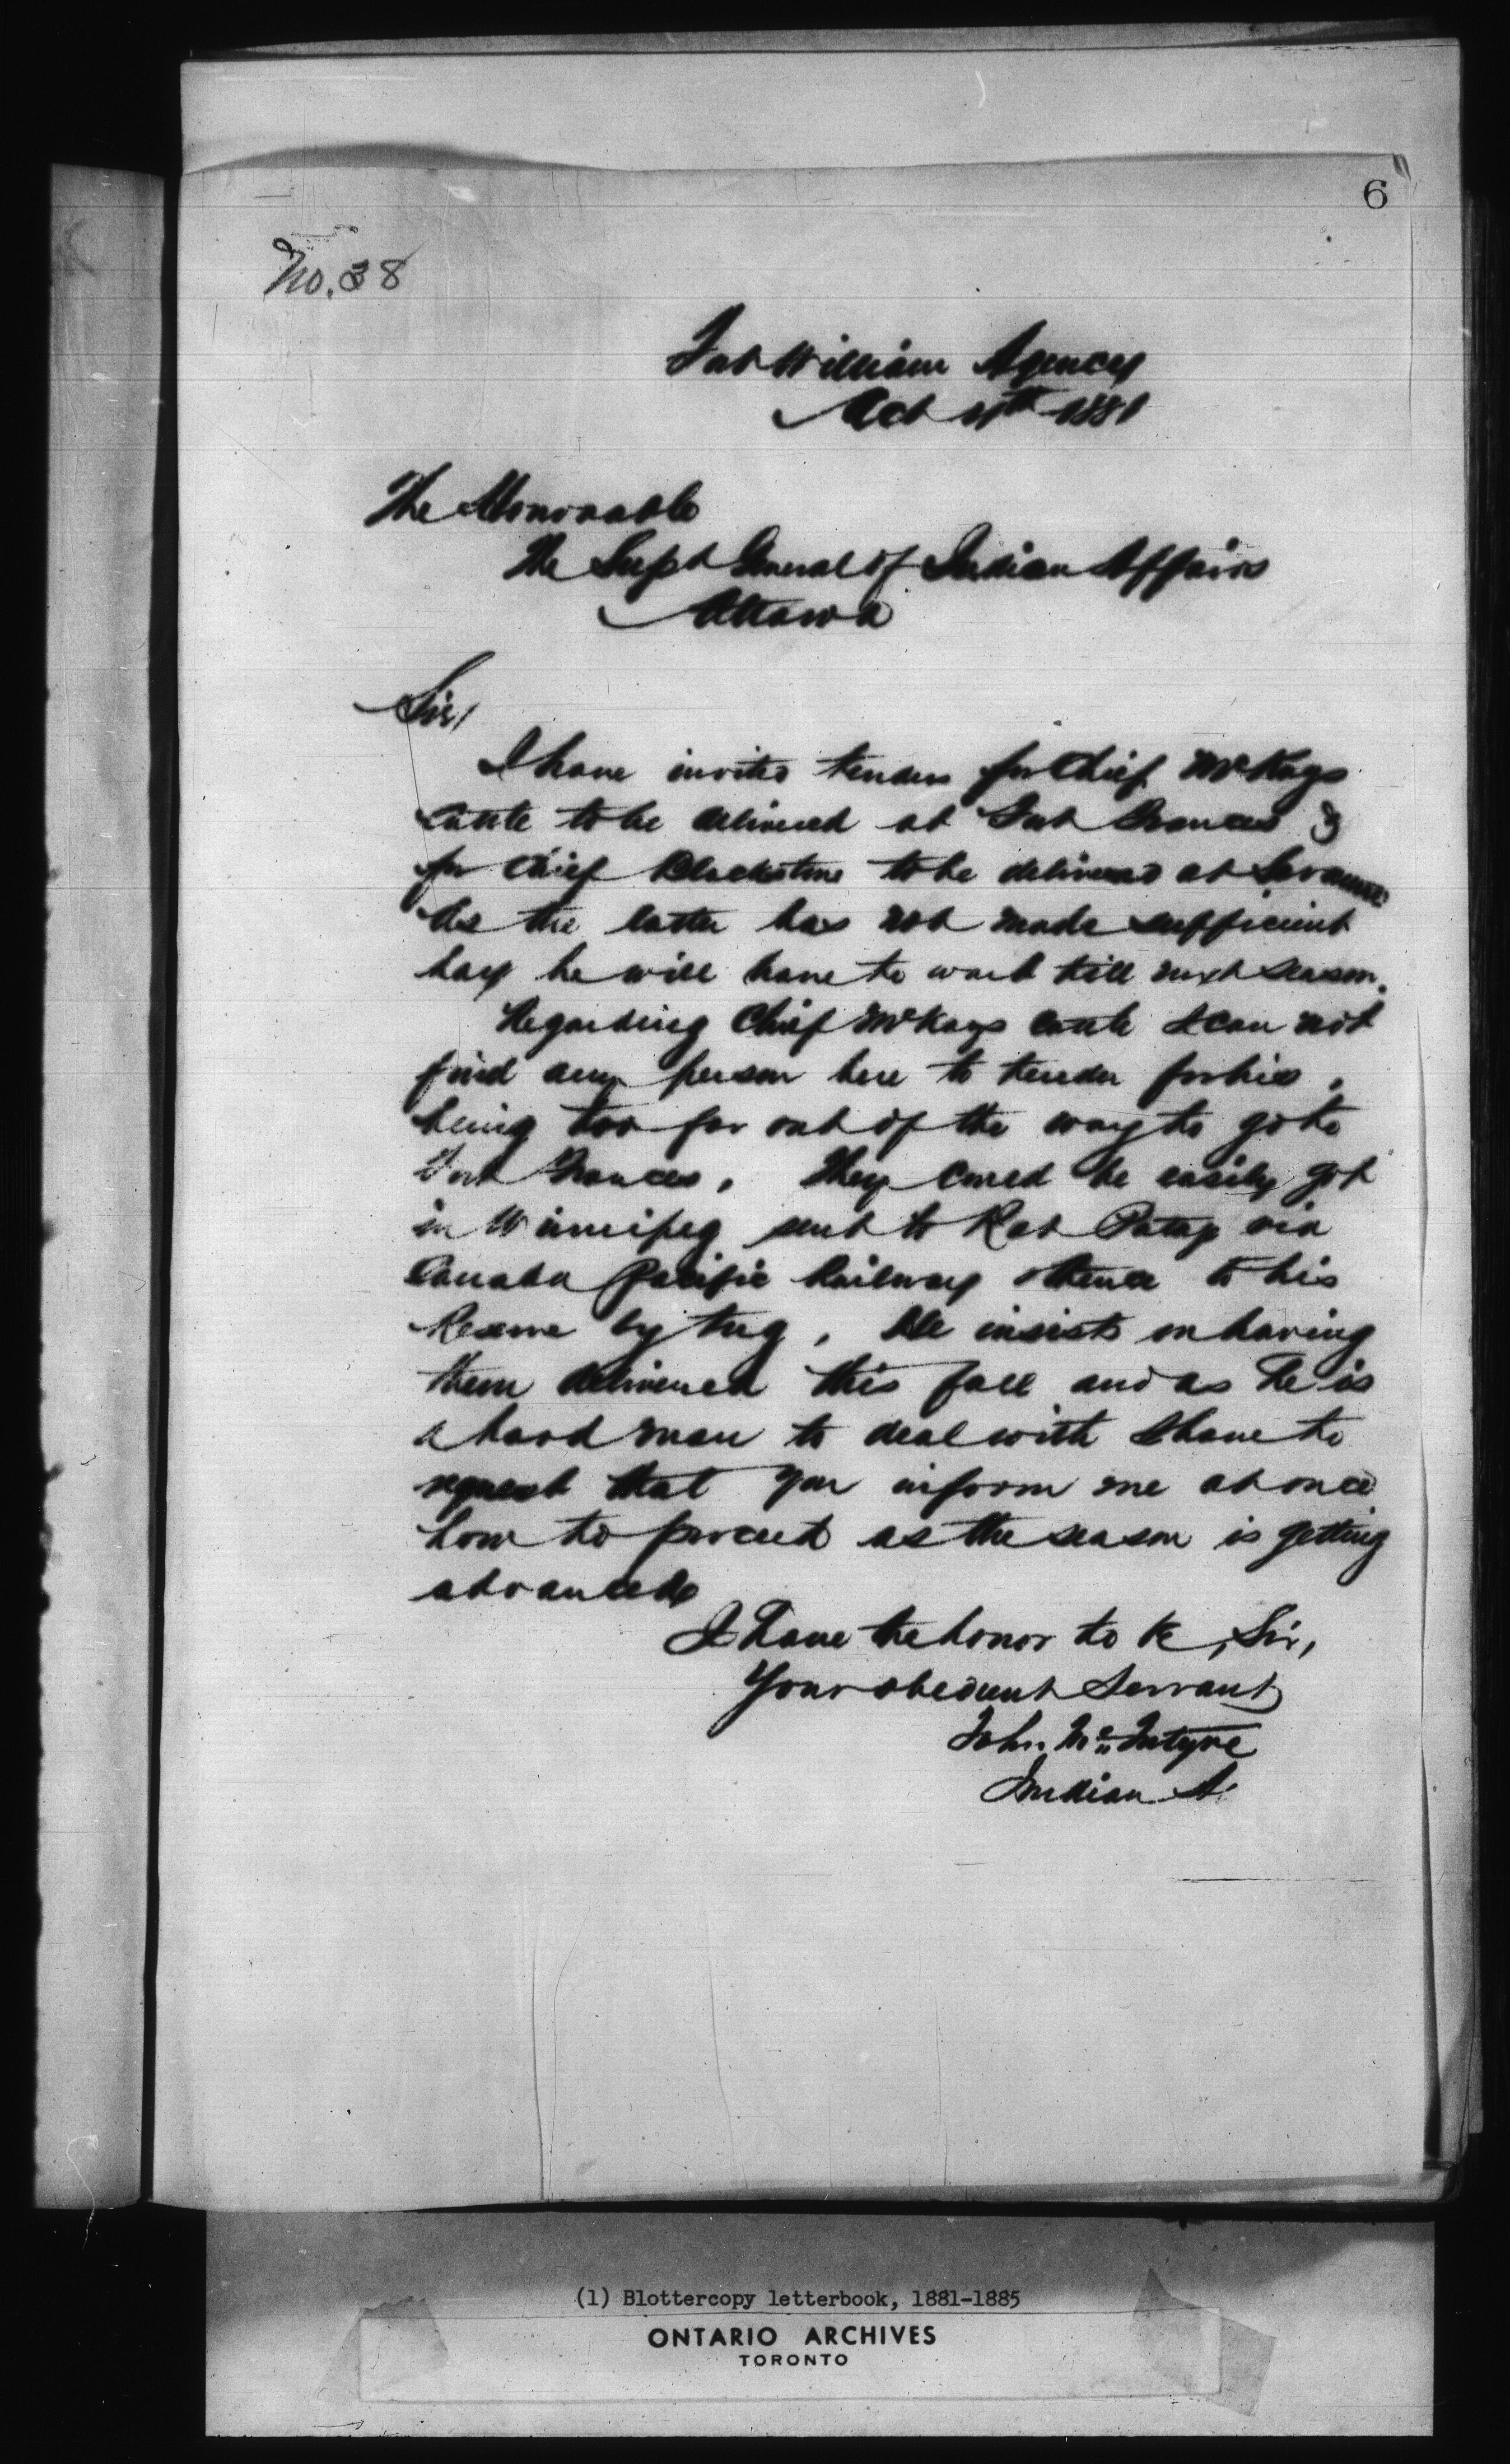 6
No. 38
Fort William Agency
Oct 11th 1881
The Honorable
The Supt General of Indian Affairs
Ottawa
Sir,
I have invited tenders for Chief McKays
cattle to be delivered at Fort Frances &
for Chief Blackstone to be delivered at Savanne
As the latter has not made sufficient
hay he will have to wait till next season.
Regarding Chief McKays cattle I can not
find any person here to tender for his,
being too far out of the way to go to
Fort Frances. They could be easily got
in Winnipeg sent to Rat Portage via
Canada Pacific Railway thence to his
Reserve by tug. He insists on having
them delivered this fall and as he is
a hard man to deal with I have to
request that you inform me at once
how to proceed as the season is getting
advanced
I have the honor to be, Sir,
Your obedient Servant
John McIntyre
Indian A.
(1) Blottercopy letterbook, 1881-1885
ONTARIO ARCHIVES
TORONTO